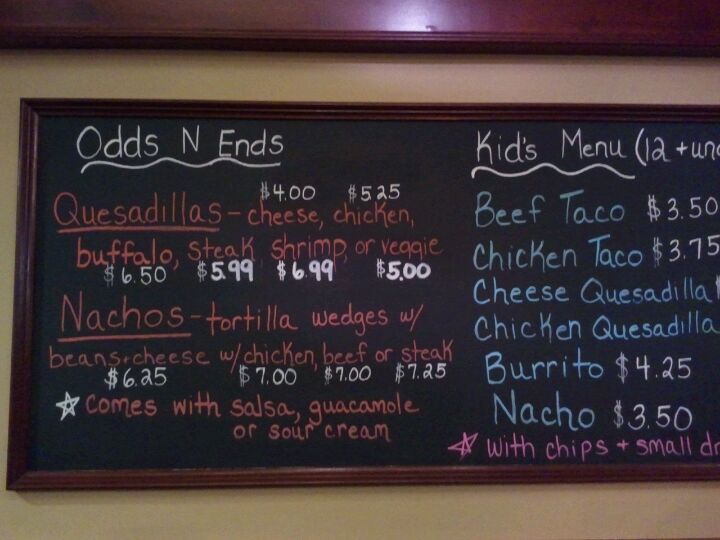 Odds N Ends
$4.00 $5.25
Quesadillas - cheese, chicken,
buffalo, steak shrimp, or veggie
$6.50 $5.99 $6.99 $5.00
Nachos - tortilla wedges w/
beans + cheese w/chicken, beef or steak
$6.25 $7.00 $7.00 $7.25
☆ comes with salsa, guacamole
or sour cream
Kid's Menu (12 +
Beef Taco $3.50
Chicken Taco $3.75
Cheese Quesadilla
Chicken Quesadilla
Burrito $4.25
Nacho $3.50
☆ with chips + small